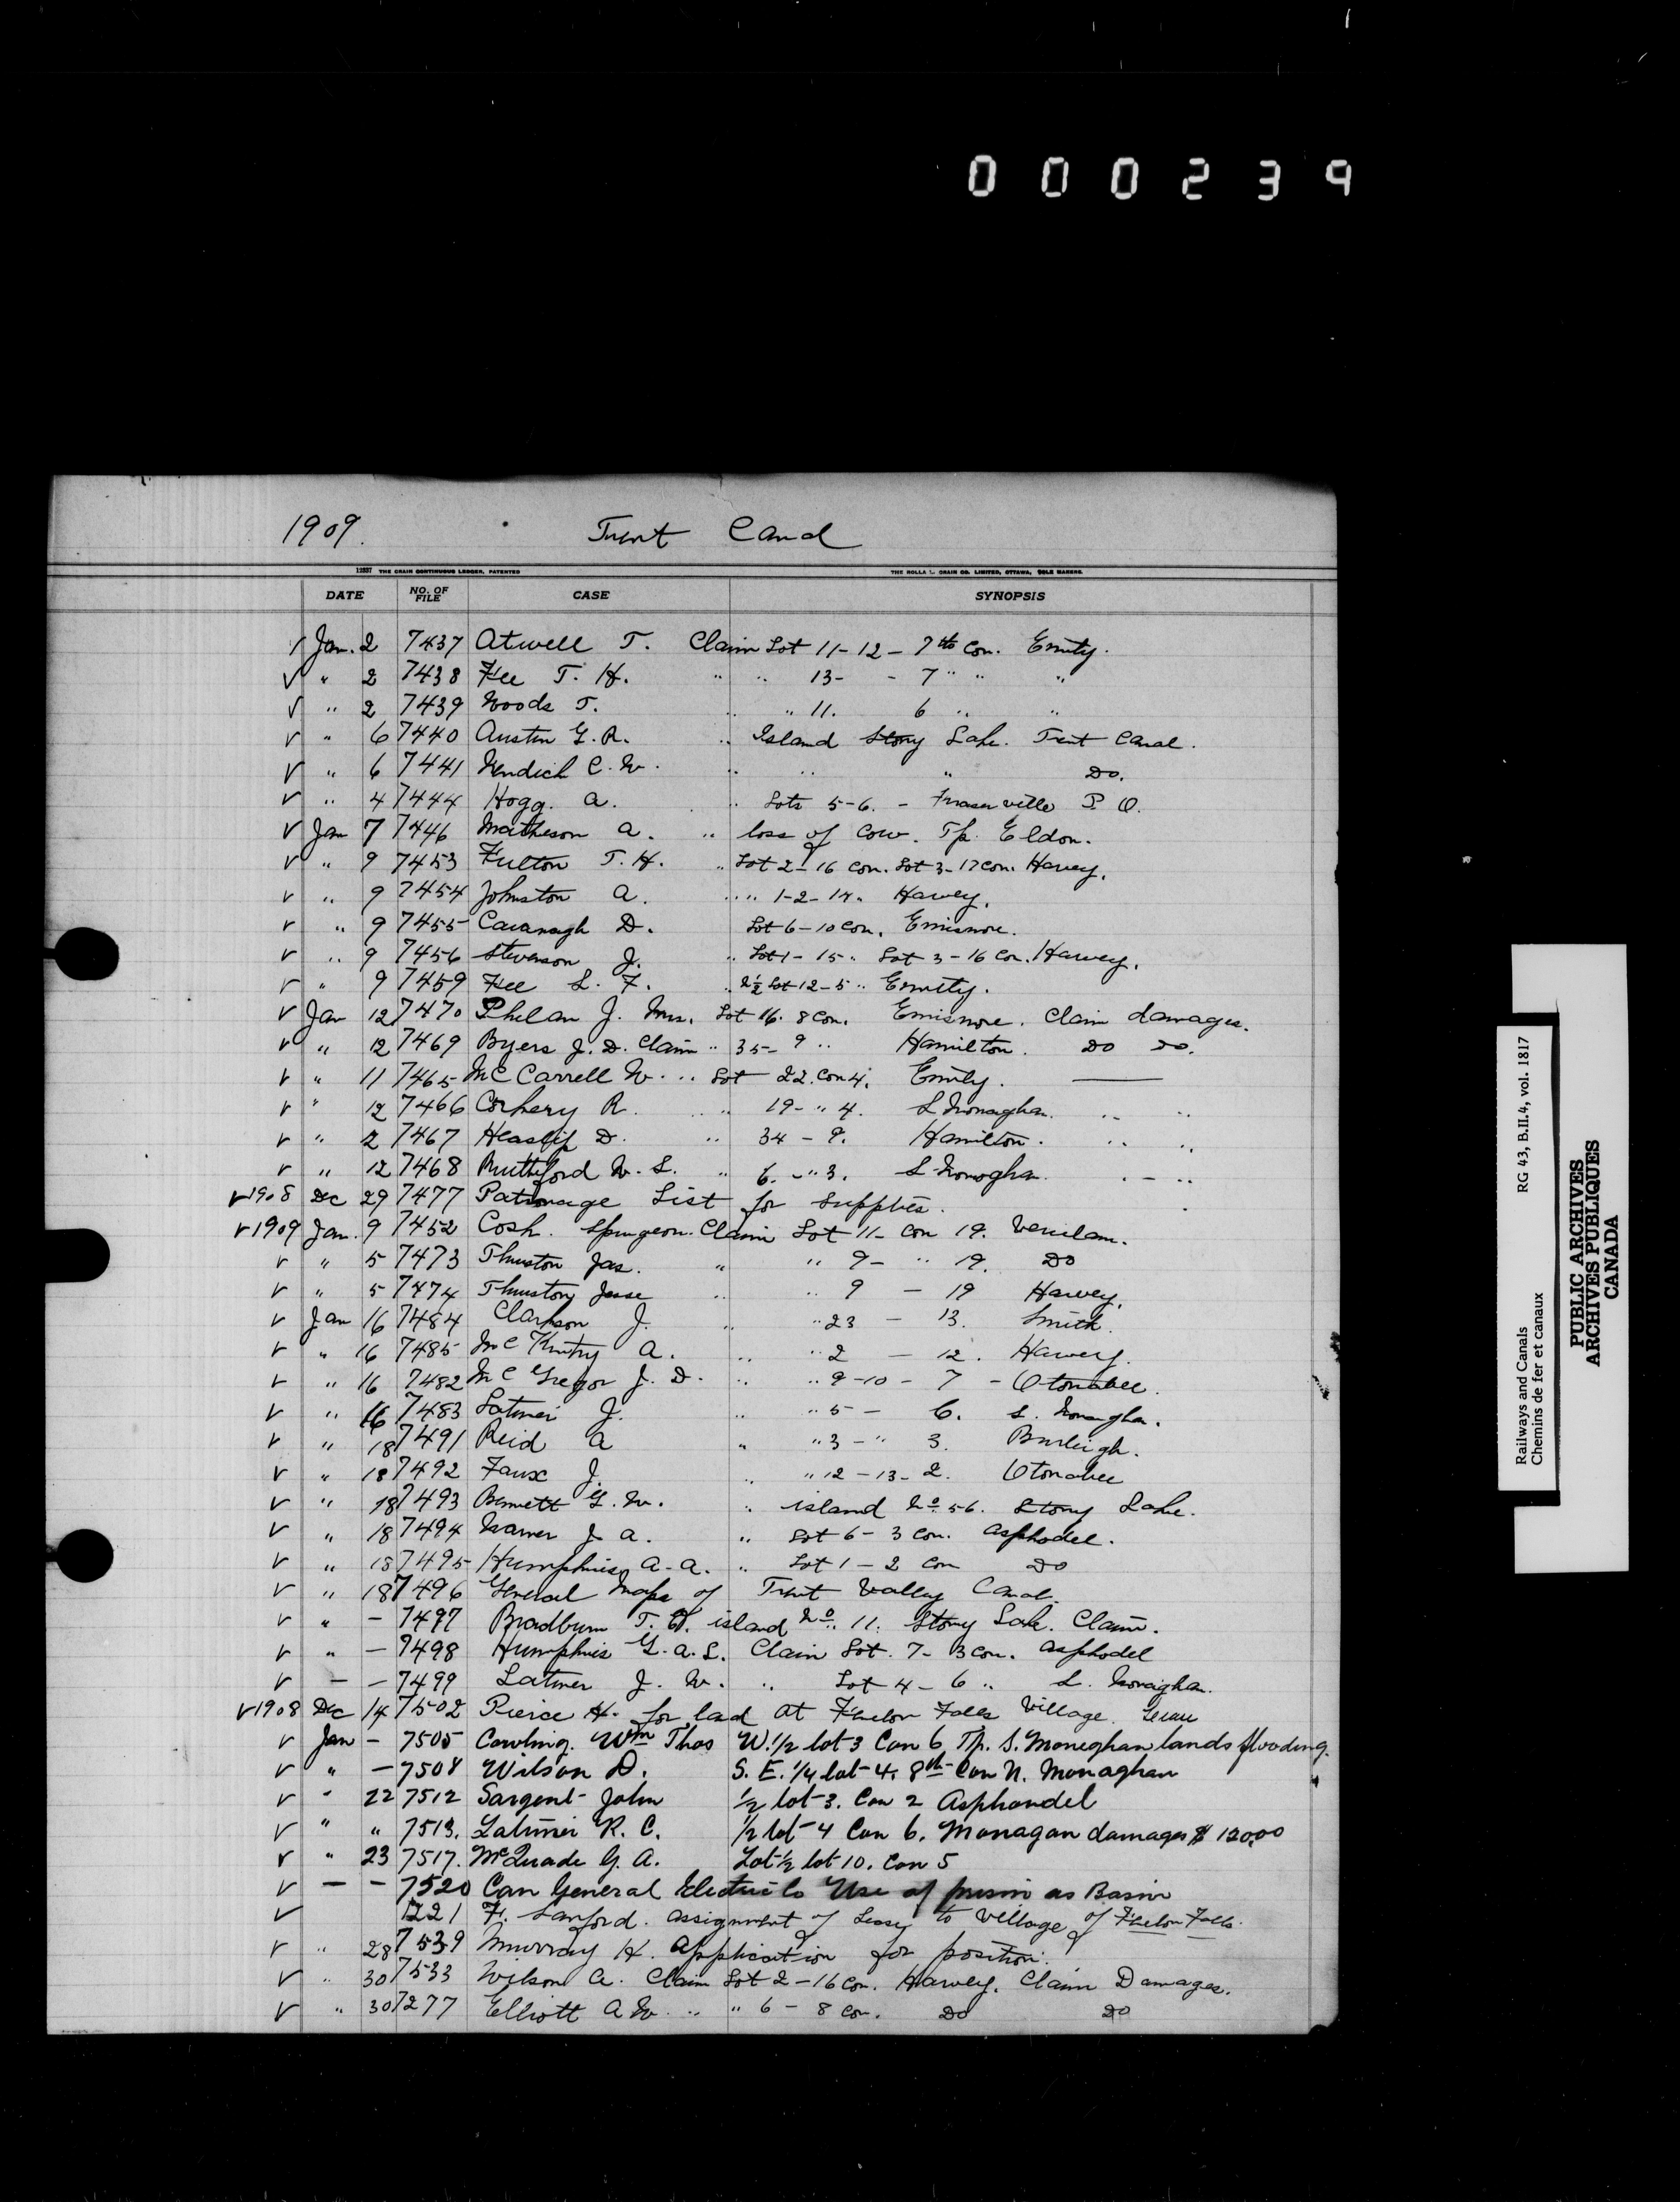 000239
1909. Trent Canal
12357 THE CRAIN CONTINUOUS LEDGER, PATENTED THE ROLLA L. CRAIN CO. LIMITED, OTTAWA, SOLE MAKERS.
DATE NO. OF FILE CASE SYNOPSIS
√ Jan. 2 7437 Atwell T. Claim Lot 11-12 - 7th Con. Emily.
√ " 2 7438 Fee T. H. " " 13- - 7 " " "
√ " 2 7439 Woods T. " " 11. 6 " "
√ " 6 7440 Austin G. R. " Island Stony Lake. Trent Canal.
√ " 6 7441 C. W. " " " Do.
√ " 4 7444 Hogg. A. " Lots 5-6. - Fraserville P O.
√ Jan 7 7446 Matheson A. " loss of cow. Tp. Eldon.
√ " 9 7453 Fulton T. H. " Lot 2-16 Con. Lot 3-17 Con. Harvey.
√ " 9 7454 Johnston A. " " 1-2-14. Harvey.
√ " 9 7455 Cavanagh D. Lot 6-10 Con. Emismore.
√ " 9 7456 Stevenson J. " Lot 1-15 " Lot 3-16 Con. Harvey.
√ " 9 7459 Fee L. F. " ½ Lot 12-5 " Emily.
√ Jan 12 7470 Phelan J. Mrs. Lot 16. 8 Con. Emismore. Claim damages.
√ " 12 7469 Byers J. D. Claim " 35- 9 " Hamilton. Do Do.
√ " 11 7465 McCarrell W. " Lot 22. Con 4. Emily. —
√ " 12 7466 Corkery R. " 19- " 4. S Monaghan. " "
√ " 2 7467 Heaslip D. " 34 - 9. Hamilton. " "
√ " 12 7468 Ruthford W. S. " 6. - " 3. S Monaghan. " "
√ 1908 Dec 29 7477 Patronage List for supplies.
√ 1909 Jan. 9 7452 Cosh. Spurgeon. Claim Lot 11- Con 19. Verulam.
√ " 5 7473 Thurston Jas. " " 9- " 19. Do
√ " 5 7474 Thurston Jesse " " 9 - 19 Harvey.
√ Jan 16 7484 Clarkson J. " " 23 - 13. Smith.
√ " 16 7485 A. " " 2 - 12. Harvey.
√ " 16 7482 McGregor J. D. " " 9-10 - 7 - Otonabee.
√ " 16 7483 Latimer J. " " 5 - 6. S. Monaghan.
√ " 18 7491 Reid A " " 3 - " 3. Burleigh.
√ " 18 7492 Faux J. " " 12-13-2. Otonabee
√ " 18 7493 Bennett G. W. " island No. 56. Stony Lake.
√ " 18 7494 J A. " Lot 6-3 Con. Asphodel.
√ " 18 7495 Humphries A. A. " Lot 1-2 Con Do
√ " 18 7496 General Maps of Trent Valley Canal.
√ " - 7497 Bradburn T. H. island No. 11. Stony Lake. Claim.
√ " - 7498 Humphries G. A. S. Claim Lot. 7- 3 Con. Asphodel
√ - - 7499 Latimer J. W. " Lot 4-6 " S. Monaghan.
√ 1908 Dec 14 7502 Pierce H. for land at Fenelon Falls Village. Lease
√ Jan - 7505 Cowling. Wm Thos W. 1/2 lot 3 Con 6 Tp. S. Moneghan lands flooding.
√ " - 7508 Wilson D. S. E. 1/4 lot 4. 8th Con N. Monaghan
√ " 22 7512 Sargent John 1/2 lot 3. Con 2 Asphondel
√ " " 7513. Latimer R. C. 1/2 lot 4 Con 6. Monagan damages $ 120.00
√ " 23 7517. McQuade G. A. Lot 1/2 lot 10. Con 5
√ - - 7520 Can General Electric Co Use of prism as Basin
√ 1221 F. Sanford. assignment of Lease to Village of Fenelon Falls.
√ " 28 7539 Murray H. Application for position.
√ " 30 7533 Wilson A. Claim Lot 2-16 Con. Harvey. Claim Damages.
√ " 30 7277 Elliott A W. " " 6-8 Con. Do Do
Railways and Canals RG 43, B.II.4, vol. 1817
Chemins de fer et canaux
PUBLIC ARCHIVES
ARCHIVES PUBLIQUES
CANADA